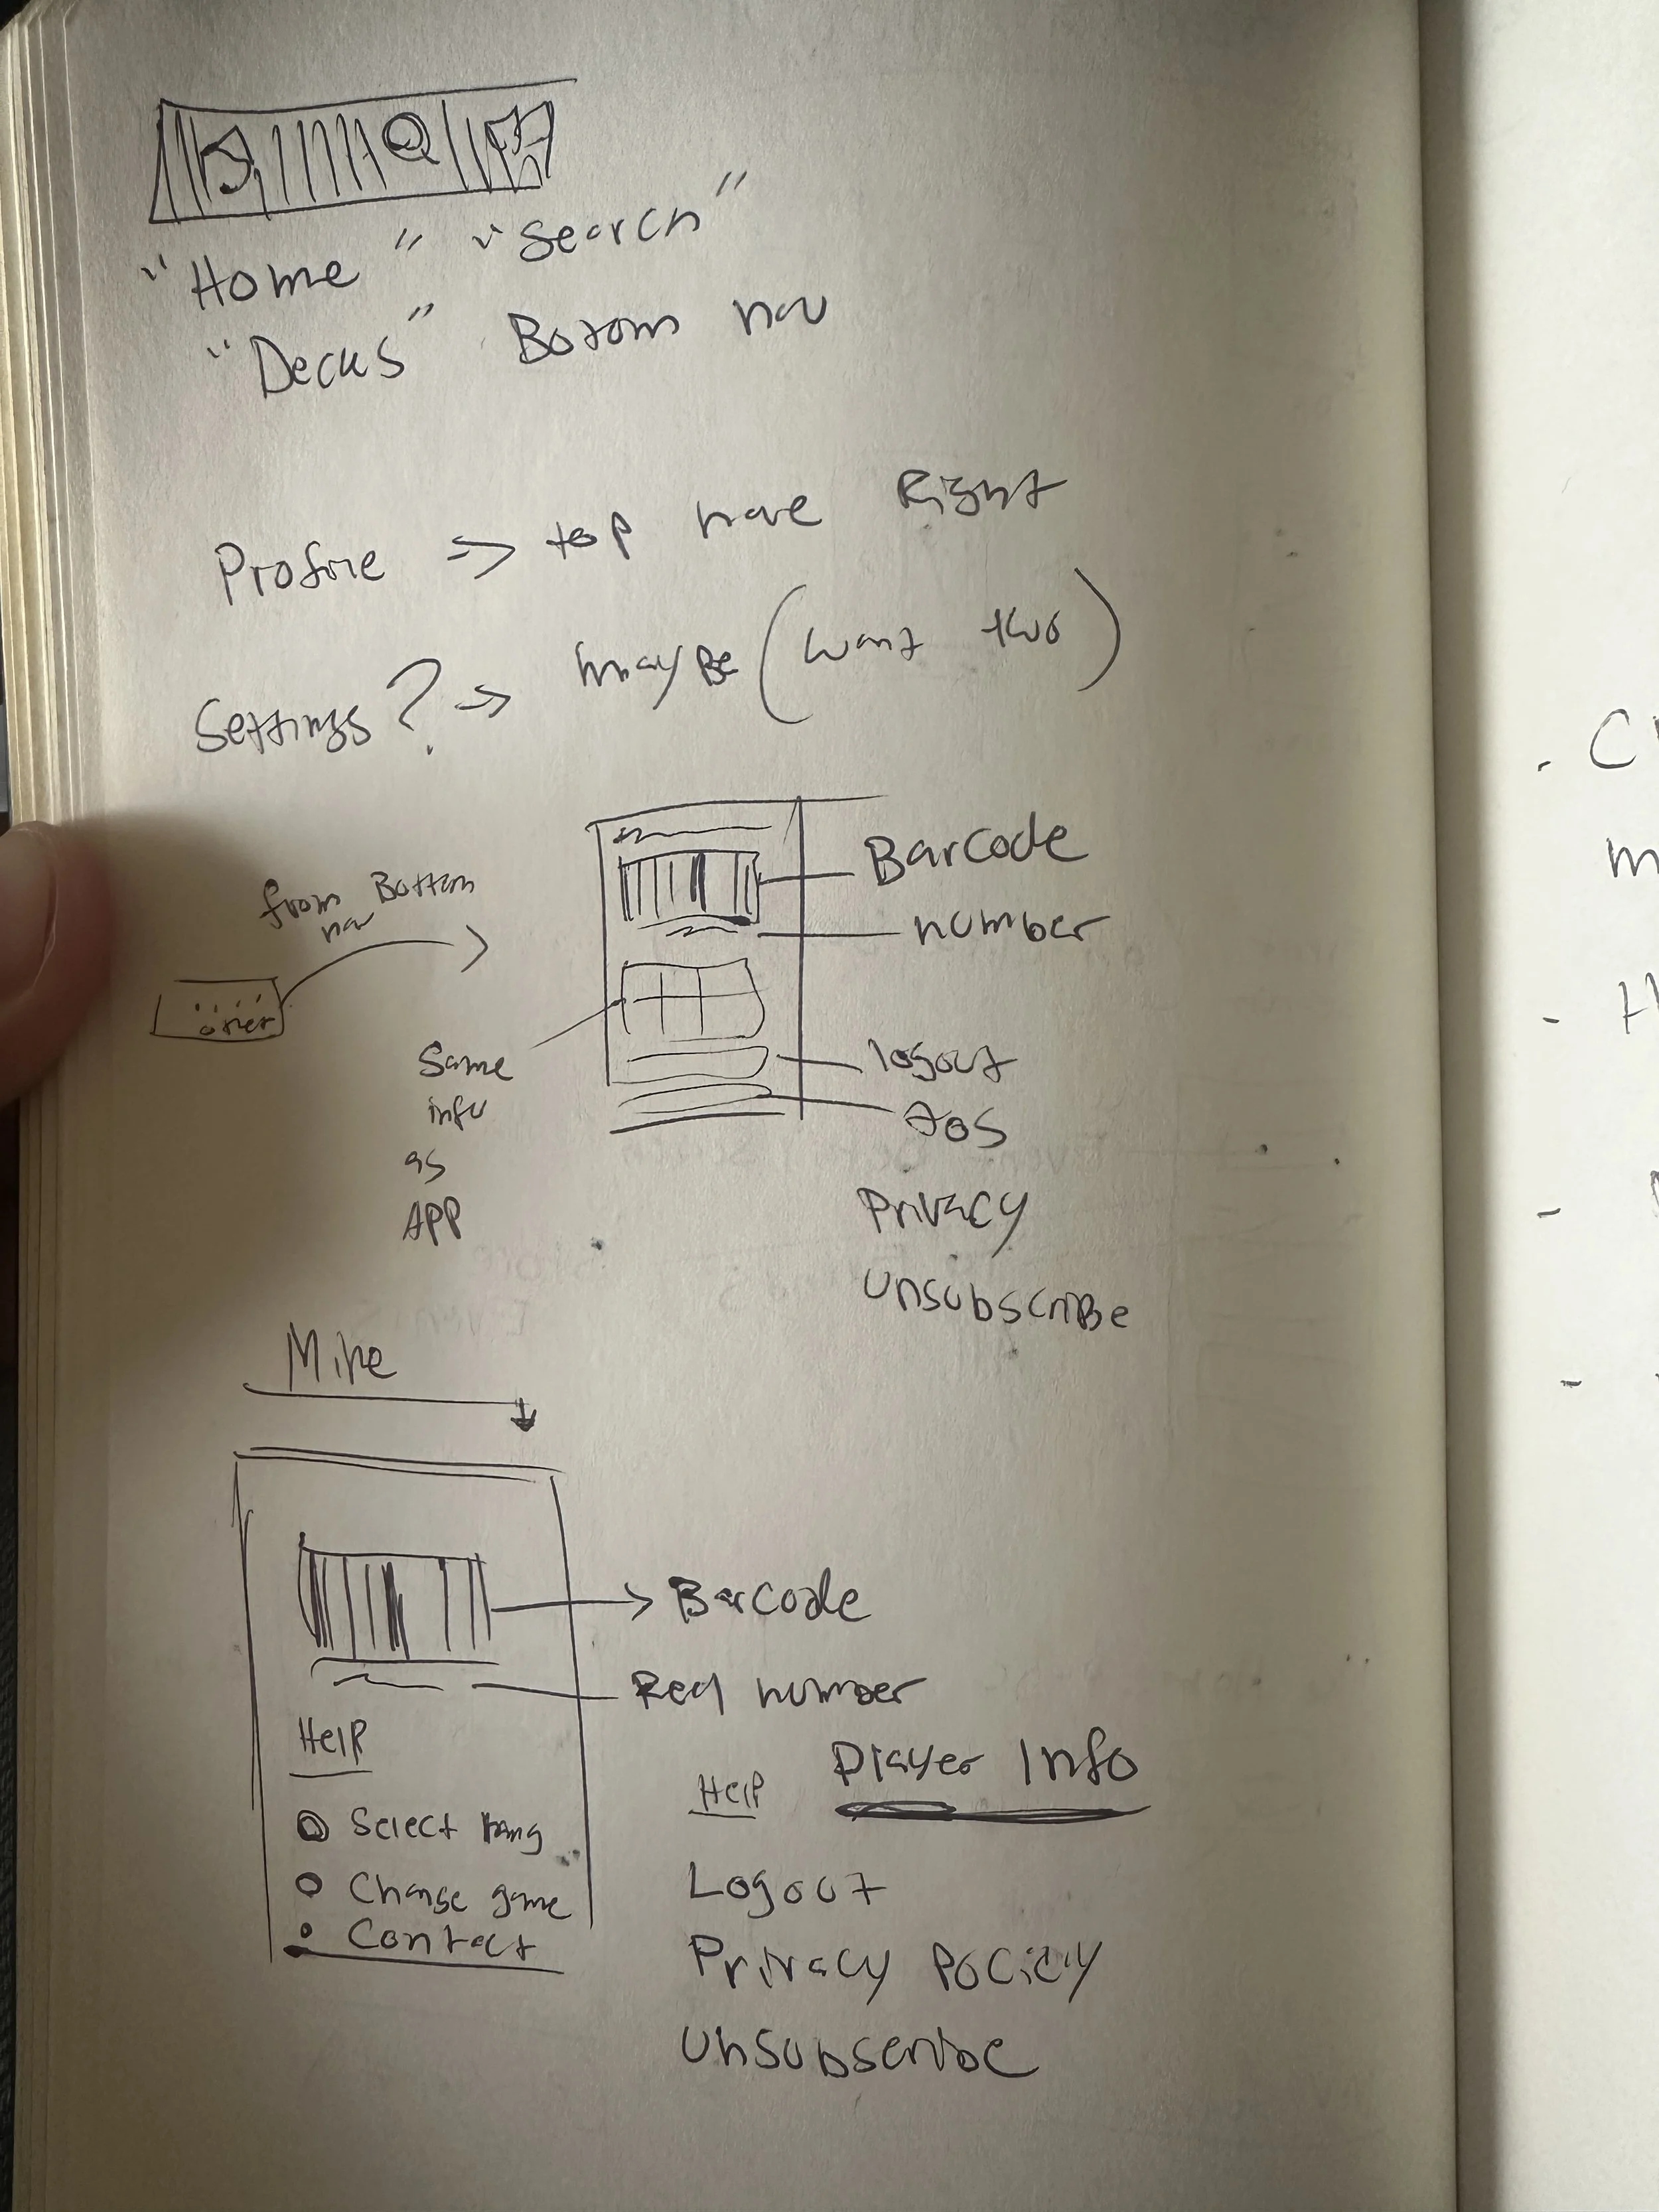 "Home" "Search"
"Decks" Bottom nav
Profile => top nave Right
Settings? -> maybe (want two)
from Bottom
nav
other
Barcode
number
Same
info
as
APP
logout
tos
Privacy
unsubscribe
Mike
Barcode
number
Help
Help Player Info
Select lang
Change game
Contact
Logout
Privacy Policy
Unsubscribe